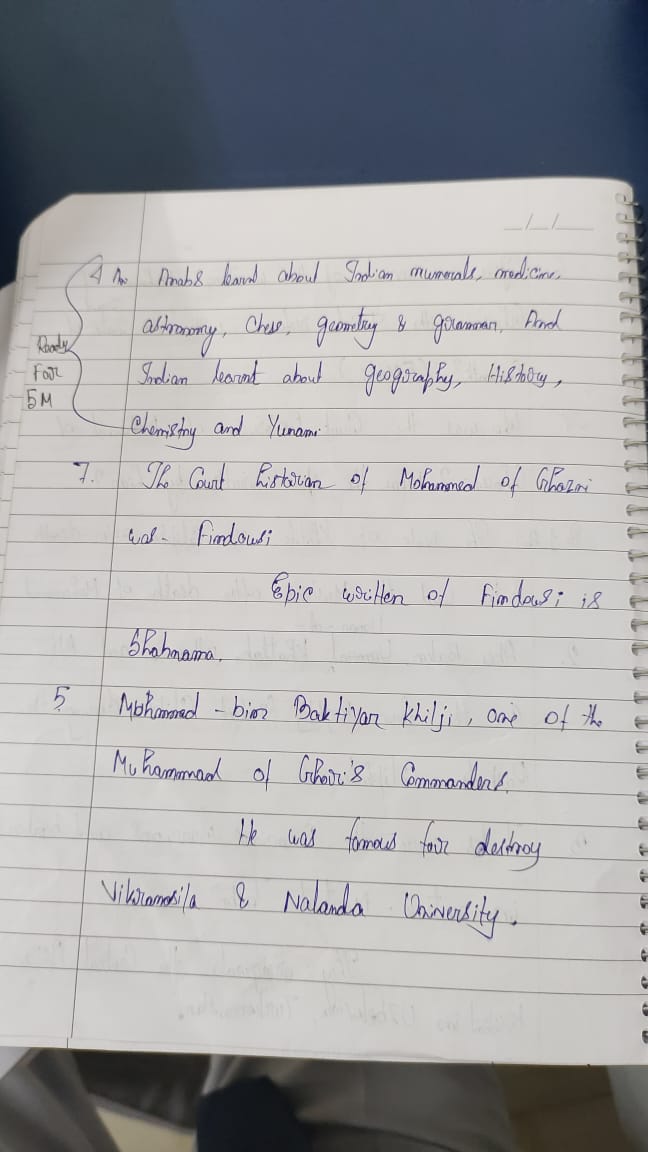 _/_/_
4 An Arabs learnt about Indian numerals, medicine,
astronomy, Chess, geometry & grammar, And
Ready
For
5M
Indian learnt about geography, History,
Chemistry and Yunami
7. The Court historian of Mohammed of Ghazni
was - Firdousi
Epic written of Firdousi is
Shahnama.
5 Mohammed - bin Baktiyar Khilji, one of the
Muhammad of Ghori's Commanders.
He was famous for destroy
Vikramasila & Nalanda University.